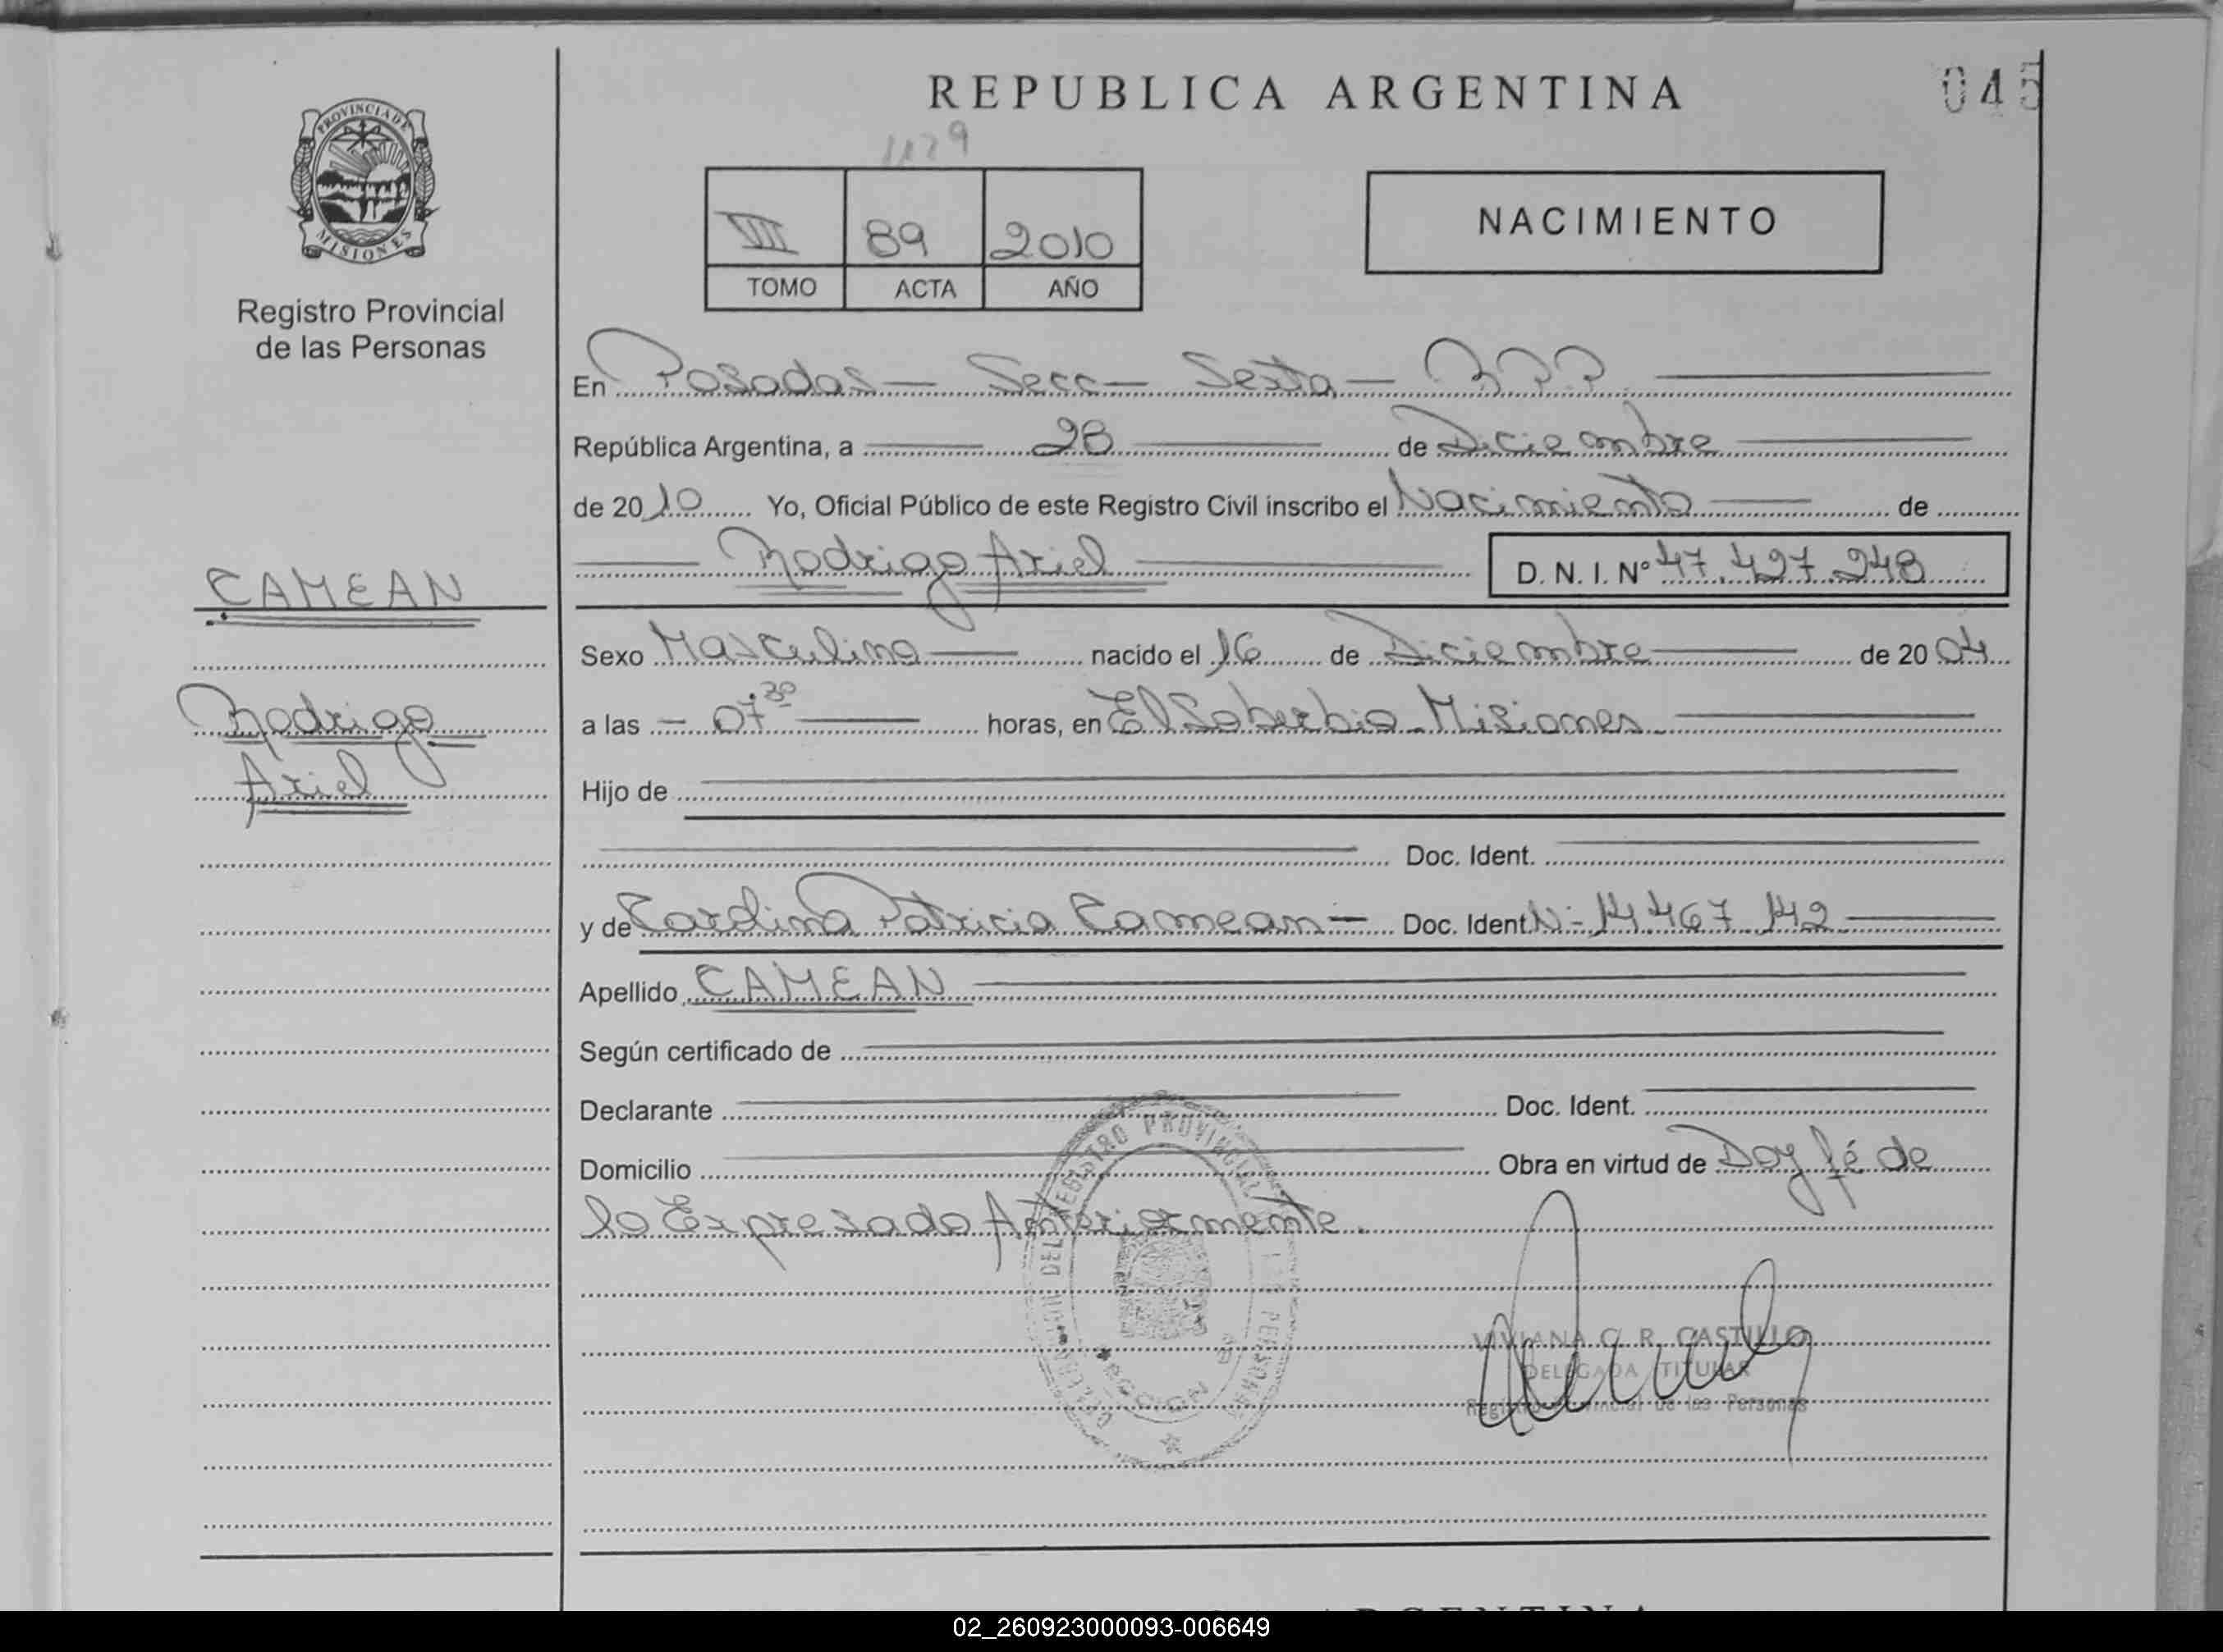 REPUBLICA ARGENTINA
045
PROVINCIA DE
MISIONES
Registro Provincial
de las Personas
1129
VIII 89 2010
TOMO ACTA AÑO
NACIMIENTO
En Posadas - Secc - Sexta - R P P
República Argentina, a 28 de Diciembre
de 2010 Yo, Oficial Público de este Registro Civil inscribo el Nacimiento de
Rodrigo Ariel D. N. I. Nº 47.497.248
CAMEAN
Sexo Masculino nacido el 16 de Diciembre de 2004
Rodrigo
Ariel
a las - 07 30 horas, en El Soberbio - Misiones
Hijo de
Doc. Ident.
y de Carolina Patricia Camean - Doc. Ident. Nº 14.467.142
Apellido CAMEAN
Según certificado de
Declarante Doc. Ident.
Domicilio Obra en virtud de Doy fé de
lo Expresado Anteriormente.
DEL REGISTRO PROVINCIAL PERSONAS
VIVIANA C. R. CASTILLO
DELEGADA TITULAR
Registro Provincial de las Personas
ARGENTINA
02_260923000093-006649